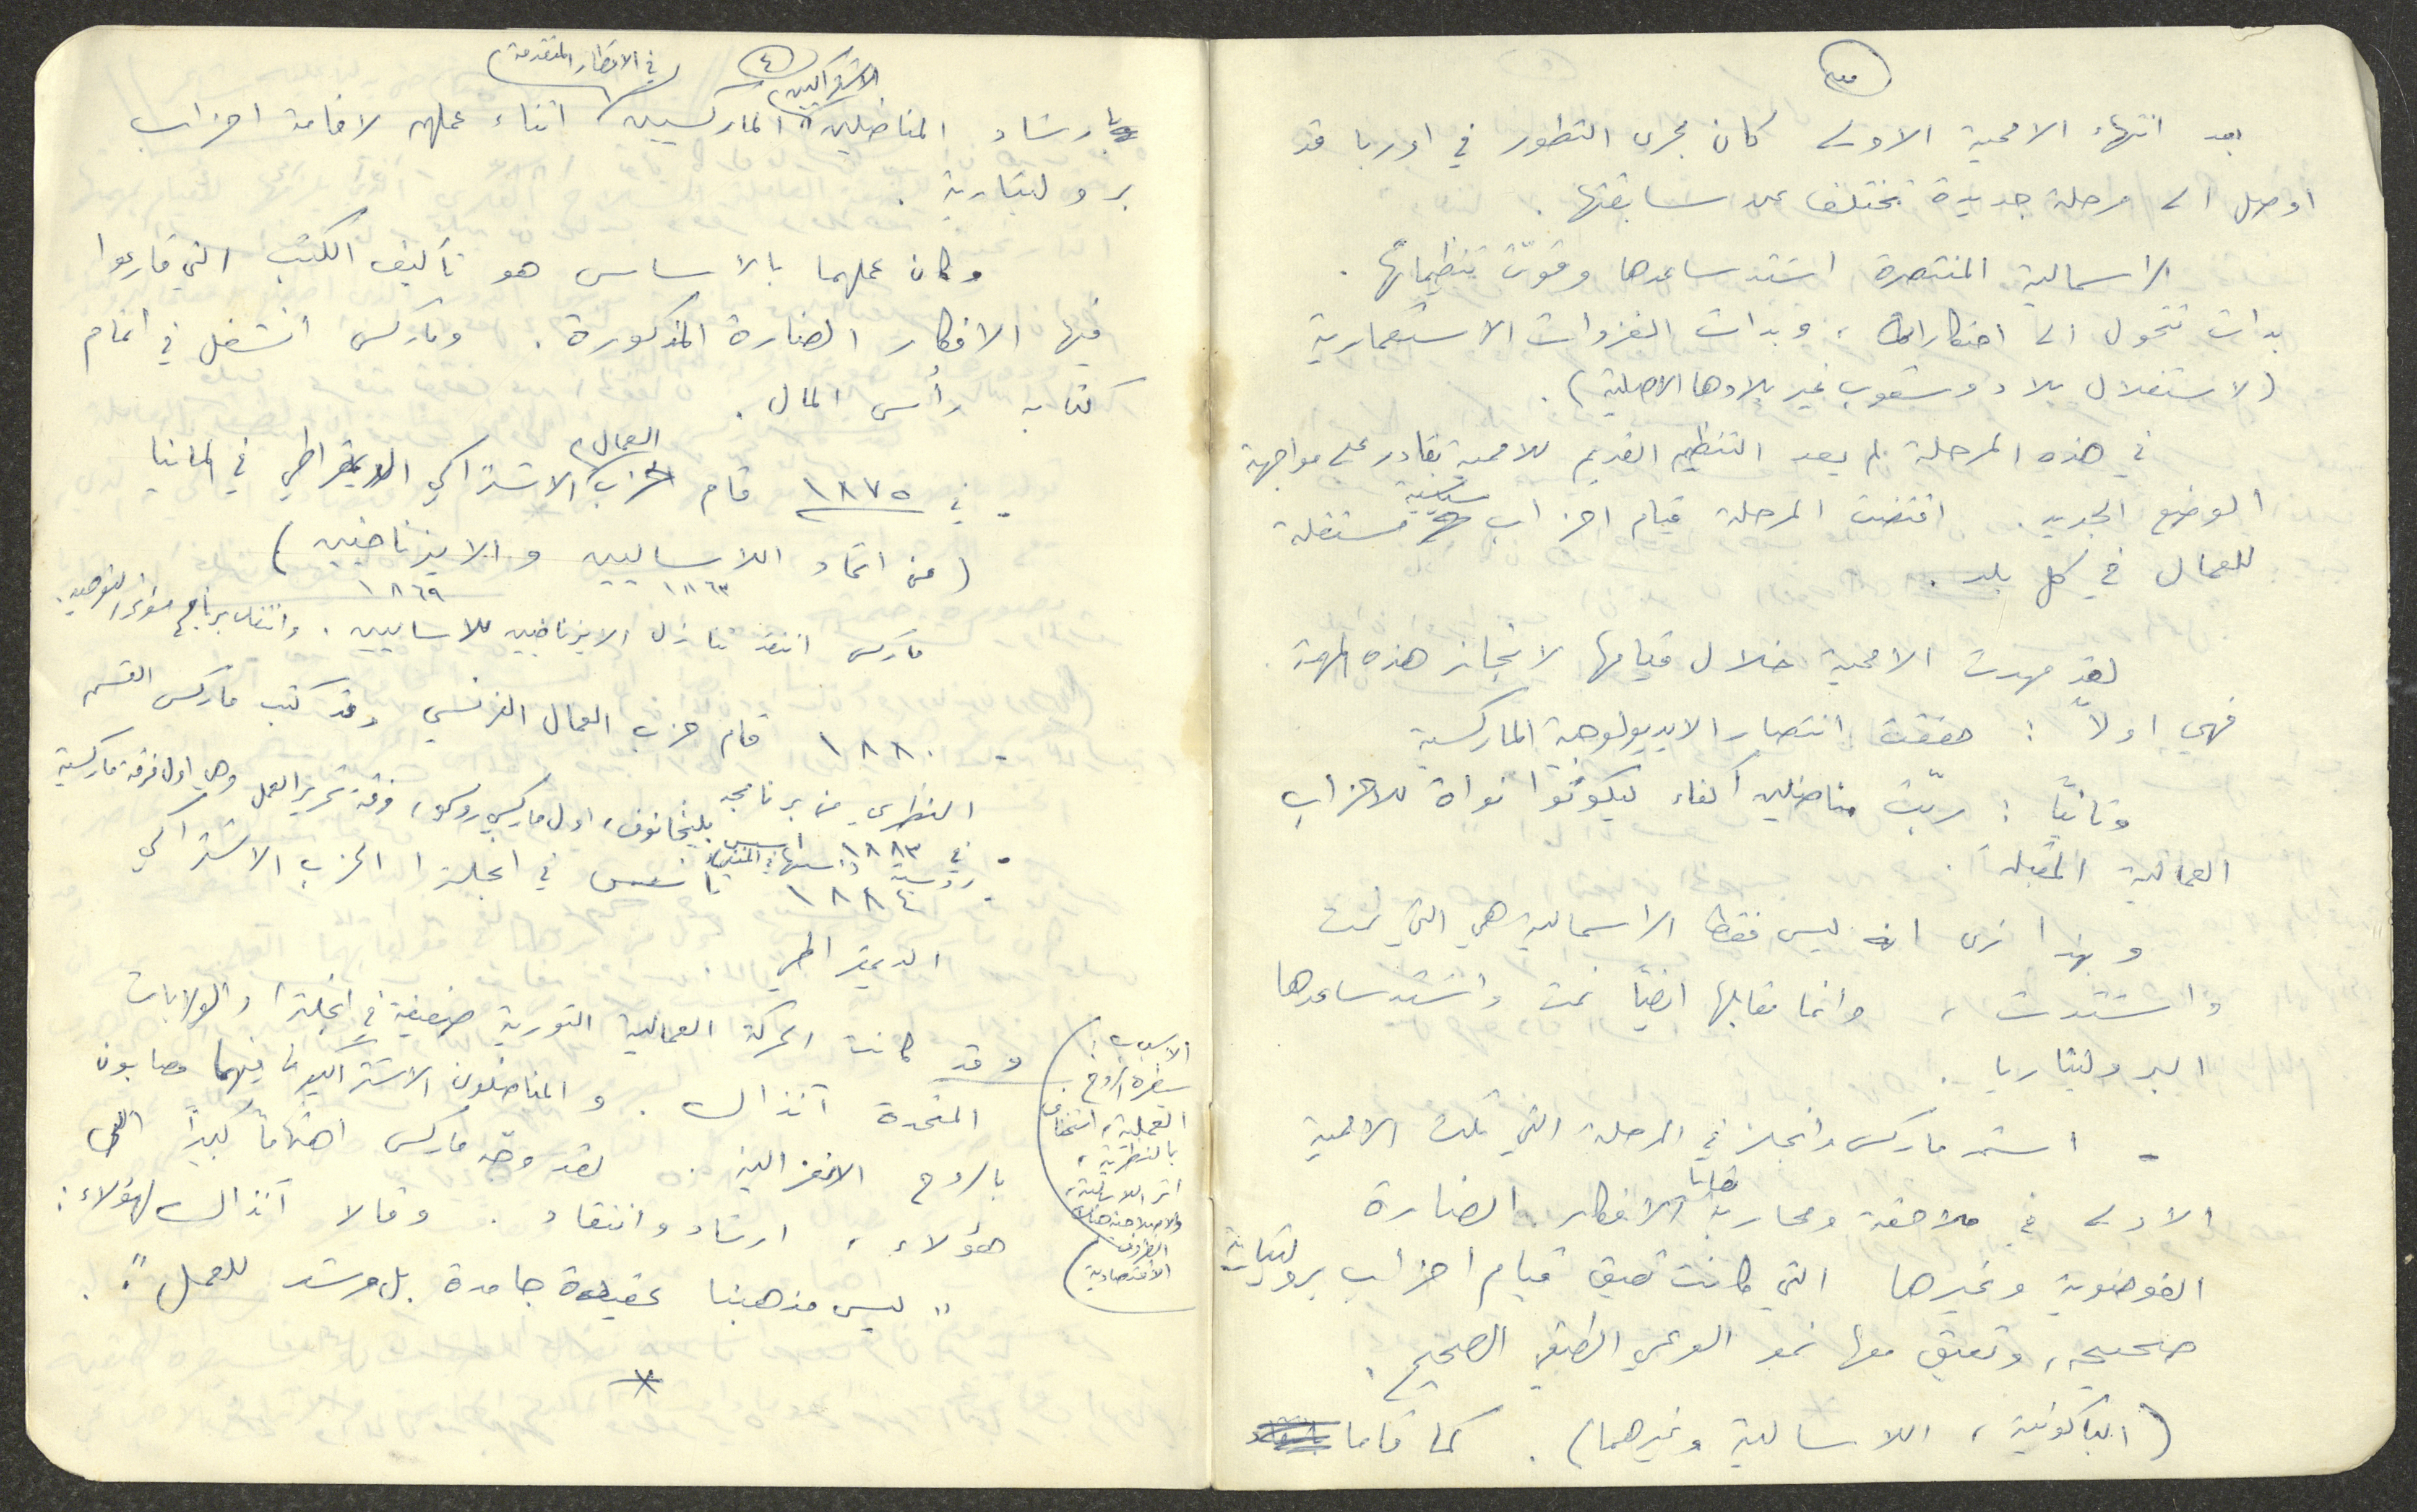 ٣
بعد انتهاء الاممية الاولى كان مجرى التطور في اوربا قد
اوصل الى مرحلة جديدة تختلف عن سابقتها .
الراسمالية المنتصرة اشتد ساعدها وقوّت تنظيماتها .
بدات تتحول الى احتكارات ، وبدات الغزوات الاستعمارية
(لاستغلال بلاد وشعوب غير بلادها الاصلية) .
في هذه المرحلة لم يعد التنظيم القديم للاممية بقادر على مواجهة
الوضع الجديد . اقتضت المرحلة قيام احزاب سياسية مستقلة
للعمال في كل بلد .
لقد مهدت الاممية خلال قيامها لانجاز هذه المهمة .
فهي اولاً : حققت انتصار الايديولوجية الماركسية
وثانياً : ربّت مناضلين أكفاء ليكونوا نواة للاحزاب
العمالية المقبلة .
وبهذا نرى انه ليس فقط الراسمالية هي التي نمت
واشتدت ، وانما مقابلها ايضاً نمت واشتد ساعدها
البروليتاريا .
- استمر ماركس وانجلز في المرحلة التي تلت الاممية
الاولى في ملاحقة ومحاربة بقايا الافكار الضارة
الفوضوية وغيرها التي كانت تعيق قيام احزاب بروليتارية
صحيحة ، وتعيق معها نمو الوعي الطبقي الصحيح .
(الباكونية ، اللاسالية وغيرهما) . كما قاما
٤
بارشاد المناضلين الاشتراكيين الماركسيين في الاقطار المتقدمة اثناء عملهم لاقامة احزاب
بروليتارية .
وكان عملهما بالاساس هو تأليف الكتب التي قارعوا
فيها الافكار الضارة المذكورة . وماركس انشغل في اتمام
كتابه رأس المال .
- في ١٨٧٥ قام حزب العمال الاشتراكي الديمقراطي في المانيا
(من اتحاد اللاساليين والايزناخيين)
١٨٦٣ ١٨٦٩
ماركس انتقد تنازل الايزناخيين للاساليين . وانتقد برنامج مؤتمر التوحيد .
- ١٨٨٠ قام حزب العمال الفرنسي وقد كتب ماركس القسم
النظري من برنامجه
- في ١٨٨٣ اسس بليخانوف ، اول ماركسي روسي ، فرقة تحرير العمل وهي اول فرقة ماركسية
روسية اسسها في المنفى
- ١٨٨٤ تأسس في انجلترا الحزب الاشتراكي
الديمقراطي
وقد كانت الحركة العمالية الثورية ضعيفة في انجلترا والولايات
المتحدة آنذاك . والمناضلون الاشتراكيون فيهما مصابون
بالروح الانعزالية . لقد وجّه ماركس اهتماماً كبيراً الى
هؤلاء ، ارشاد وانتقاد . وقالا آنذاك لهؤلاء :
" ليس مذهبنا عقيدة جامدة بل مرشد للعمل " .
الاسباب :
سيطرة الروح
العملية ، استخفاف
بالنظرية ،
اثر اللاسالية ،
الظروف
الاقتصادية)